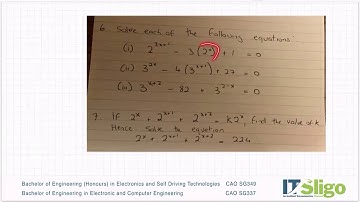 6. Solve each of the following equations.
(i) 2^(2x+1) - 3(2^x) + 1 = 0
(ii) 3^(2x) - 4(3^(x+1)) + 27 = 0
(iii) 3^(x+2) - 82 + 3^(2-x) = 0
7. If 2^x + 2^(x+1) + 2^(x+2) = k2^x, find the value of k
Hence solve to equation
2^x + 2^(x+1) + 2^(x+2) = 224
Bachelor of Engineering (Honours) in Electronics and Self Driving Technologies CAO SG349
Bachelor of Engineering in Electronic and Computer Engineering CAO SG337
IT Sligo